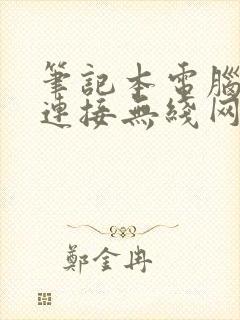 筆記本電腦
連接無綫网
鄭金冉